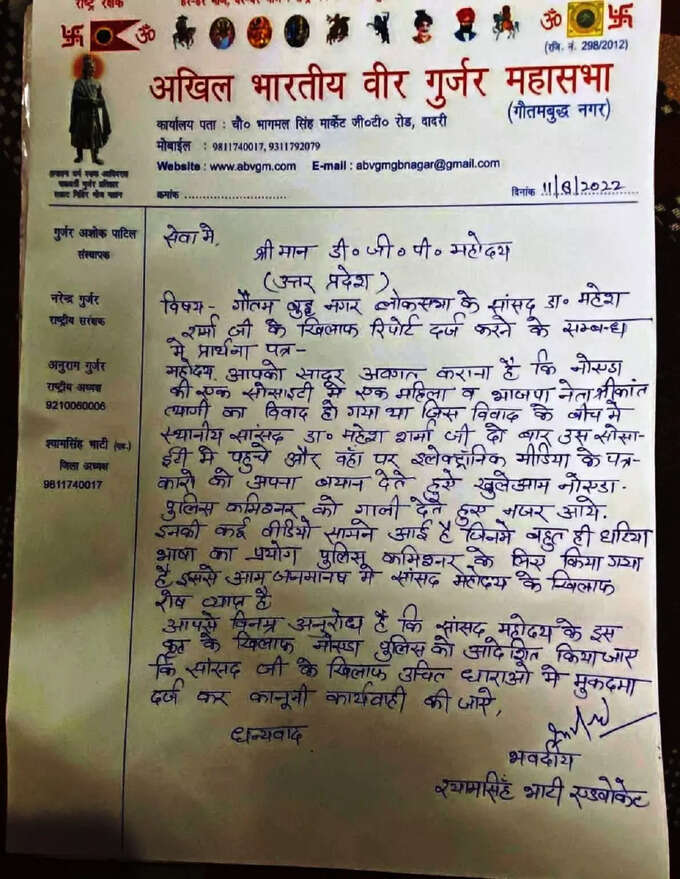 राष्ट्र रक्षक
(रजि. नं. 298/2012)
अखिल भारतीय वीर गुर्जर महासभा
(गौतमबुद्ध नगर)
कार्यालय पता : चौ० भागमल सिंह मार्केट जी०टी० रोड, दादरी
मोबाईल : 9811740017, 9311792079
Website : www.abvgm.com E-mail : abvgmgbnagar@gmail.com
क्रमांक ....................... दिनांक 11/8/2022
गुर्जर अशोक पाटिल
संस्थापक
नरेन्द्र गुर्जर
राष्ट्रीय संरक्षक
अनुराग गुर्जर
राष्ट्रीय अध्यक्ष
9210060006
श्यामसिंह भाटी (एड.)
जिला अध्यक्ष
9811740017
सेवा मे,
श्री मान डी०जी०पी० महोदय
(उत्तर प्रदेश)
विषय- गौतम बुद्ध नगर लोकसभा के सांसद डा० महेश
शर्मा जी के खिलाफ रिपोर्ट दर्ज करने के सम्बन्ध
मे प्रार्थना पत्र-
महोदय, आपको सादर अवगत कराना है कि नोएडा
की एक सोसाइटी मे एक महिला व भाजपा नेता श्रीकांत
त्यागी का विवाद हो गया था जिस विवाद के बीच मे
स्थानीय सांसद डा० महेश शर्मा जी दो बार उस सोसा-
ईटी मे पहुंचे और वहाँ पर इलेक्ट्रॉनिक मीडिया के पत्र-
कारो को अपना बयान देते हुऐ खुलेआम नोएडा-
पुलिस कमिश्नर को गाली देते हुए नजर आये.
इनकी कई वीडियो सामने आई है जिनमे बहुत ही घटिया
भाषा का प्रयोग पुलिस कमिश्नर के लिए किया गया
है इससे आम जनमानष मे सांसद महोदय के खिलाफ
रोष व्याप्त है
आपसे विनम्र अनुरोध है कि सांसद महोदय के इस
कृत के खिलाफ नोएडा पुलिस को आदेशित किया जाए
कि सांसद जी के खिलाफ उचित धाराओ मे मुकदमा
दर्ज कर कानूनी कार्यवाही की जाऐ,
धन्यवाद
भवदीय
श्यामसिंह भाटी एडवोकेट